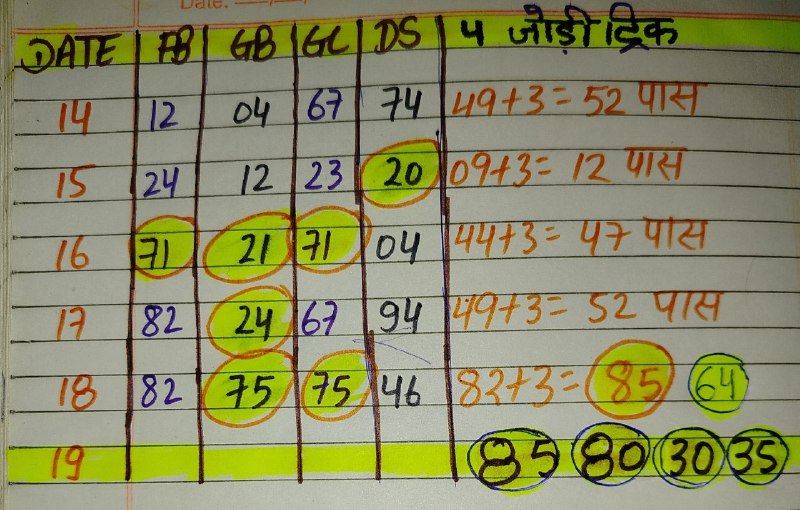 Date.
DATE FB GB GC DS 4 जोड़ी ट्रिक
14 12 04 67 74 49+3= 52 पास
15 24 12 23 20 09+3= 12 पास
16 71 21 71 04 44+3= 47 पास
17 82 24 67 94 49+3= 52 पास
18 82 75 75 46 82+3= 85 64
19 85 80 30 35